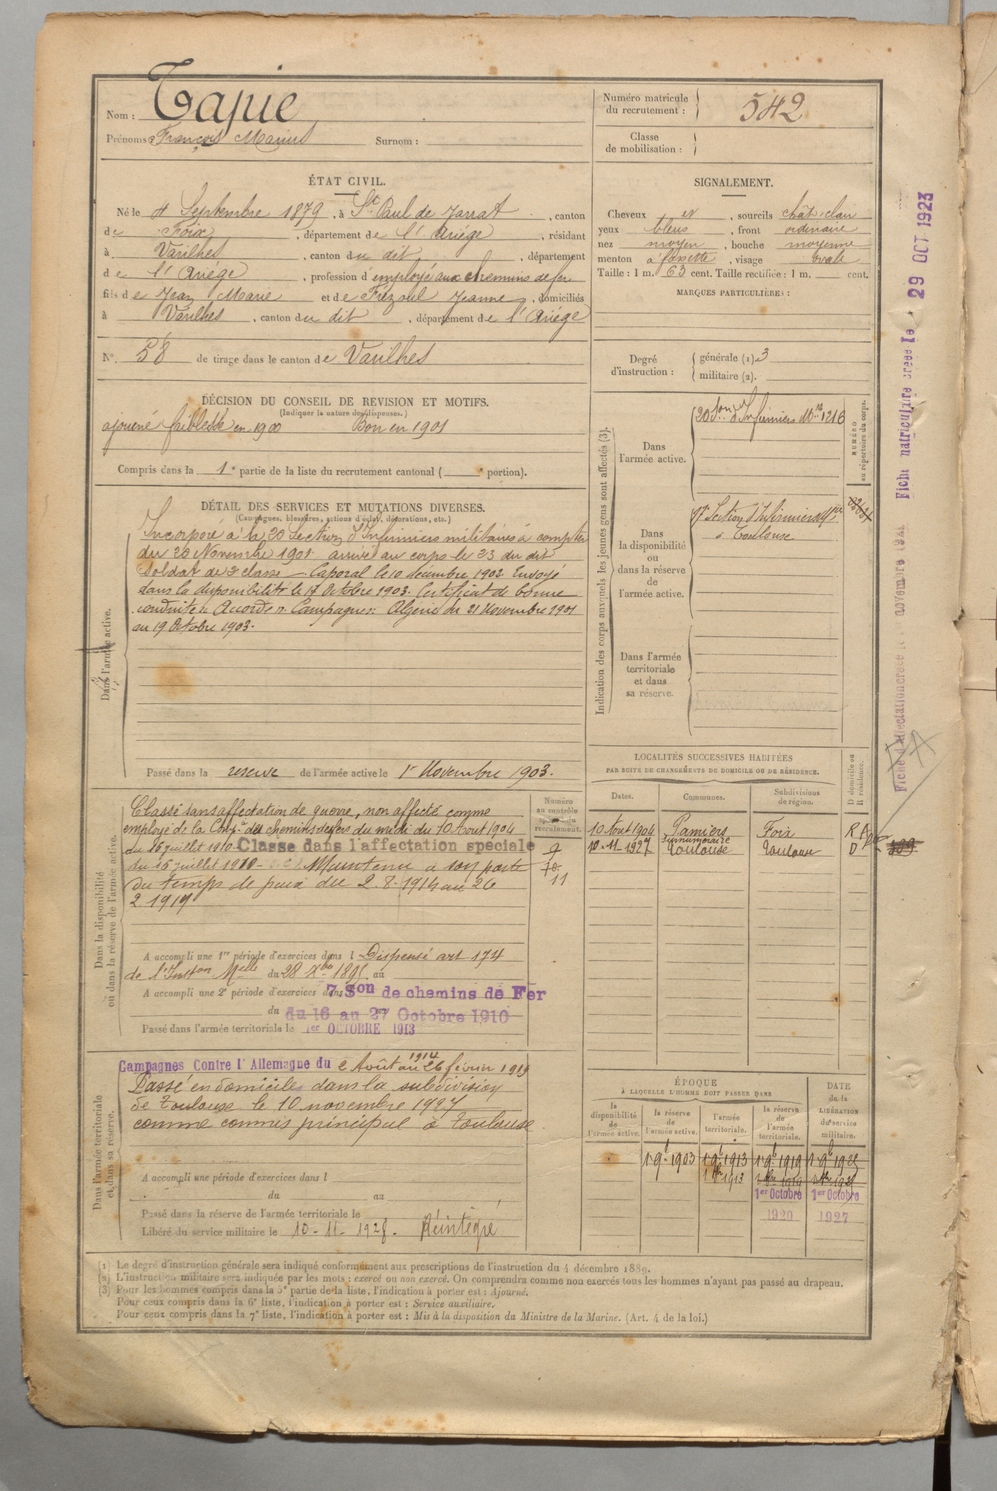 Nom : Tapie
Prénoms : François Marius Surnom :
Numéro matricule du recrutement : 542
Classe de mobilisation :
ÉTAT CIVIL.
Né le 4 Septembre 1879, à St Paul de Jarrat, canton
de Foix, département de l'Ariège, résidant
à Varilhes, canton du dit, département
de l'Ariège, profession d'employé aux chemins de fer
fils de Jean Marie et de Frézoul Jeanne, domiciliés
à Varilhes, canton du dit, département de l'Ariège
N° 58 de tirage dans le canton de Varilhes
SIGNALEMENT.
Cheveux et, sourcils chât. clair
yeux bleus, front ordinaire
nez moyen, bouche moyenne
menton à fossette, visage ovale
Taille : 1 m. 63 cent. Taille rectifiée : 1 m. cent.
MARQUES PARTICULIÈRES :
Degré d'instruction : générale (1). 3
militaire (2).
DÉCISION DU CONSEIL DE REVISION ET MOTIFS.
(Indiquer la nature des dispenses.)
ajourné faiblesse en 1900 Bon en 1901
Compris dans la 1e partie de la liste du recrutement cantonal ( portion).
DÉTAIL DES SERVICES ET MUTATIONS DIVERSES.
(Campagnes, blessures, actions d'éclat, décorations, etc.)
Dans l'armée active.
Incorporé à la 20 Section d'Infirmiers militaires à compter
du 20 Novembre 1901. arrivé au corps le 23 du dit
Soldat de 2e classe. Caporal le 10 décembre 1902. Envoyé
dans la disponibilité le 17 Octobre 1903. Certificat de bonne
conduite Accordé. Campagnes: Algérie du 21 Novembre 1901
au 19 Octobre 1903.
Passé dans la réserve de l'armée active le 1er Novembre 1903.
Indication des corps auxquels les jeunes gens sont affectés (3).
NUMÉRO au répertoire du corps.
Dans l'armée active. 20 Son d'Infirmiers Mres 1216
Dans la disponibilité ou dans la réserve de l'armée active.
17e Section d'Infirmiers Mres
à Toulouse
Dans l'armée territoriale et dans sa réserve.
Fiche matriculaire créée le 29 OCT 1923
Dans la disponibilité ou dans la réserve de l'armée active.
Classé sans affectation de guerre, non affecté comme
employé de la Comp.ie des chemins de fer du midi du 10 Aout 1904
du 16 juillet 1910 Classé dans l'affectation spéciale
du 16 juillet 1910 Maintenu à son poste
du temps de paix du 2.8.1914 au 26
2.1919
Numéro au contrôle spécial du recrutement.
9
10
11
A accompli une 1re période d'exercices dans l Dispensé art 174
de l'Inston Melle du 28 Xbre 1895 au
A accompli une 2e période d'exercices dans 7 Son de chemins de Fer
du du 16 au 27 Octobre 1910
Passé dans l'armée territoriale le 1er OCTOBRE 1913
LOCALITÉS SUCCESSIVES HABITÉES
PAR SUITE DE CHANGEMENTS DE DOMICILE OU DE RÉSIDENCE.
Dates. Communes. Subdivisions de région. D domicile ou R résidence.
10 Aout 1904 Pamiers Foix R
surnuméraire
10.11.1927 Toulouse Toulouse D
Dans l'armée territoriale et dans sa réserve.
Campagnes Contre l'Allemagne du 2 Août 1914 au 26 février 1919
Passé en domicile dans la subdivision
de Toulouse le 10 novembre 1927
comme commis principal à Toulouse
A accompli une période d'exercices dans l
du au
Passé dans la réserve de l'armée territoriale le
Libéré du service militaire le 10-11-1928. Réintégré
ÉPOQUE
À LAQUELLE L'HOMME DOIT PASSER DANS
la disponibilité de l'armée active. la réserve de l'armée active. l'armée territoriale. la réserve de l'armée territoriale. DATE de la LIBÉRATION du service militaire.
1er Octobre 1er Octobre
1920 1927
(1) Le degré d'instruction générale sera indiqué conformément aux prescriptions de l'instruction du 4 décembre 1889.
(2) L'instruction militaire sera indiquée par les mots : exercé ou non exercé. On comprendra comme non exercés tous les hommes n'ayant pas passé au drapeau.
(3) Pour les hommes compris dans la 5e partie de la liste, l'indication à porter est : Ajourné.
Pour ceux compris dans la 6e liste, l'indication à porter est : Service auxiliaire.
Pour ceux compris dans la 7e liste, l'indication à porter est : Mis à la disposition du Ministre de la Marine. (Art. 4 de la loi.)